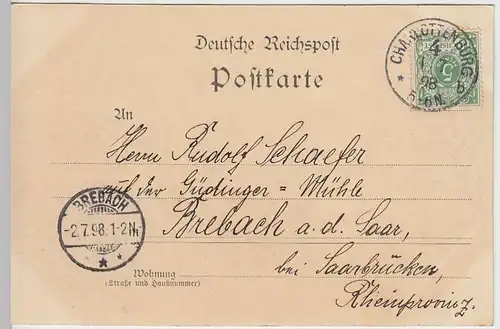 Deutsche Reichspost
Postkarte
CHARLOTTENBURG
4
98
5-6N.
b
5
An
Herrn Rudolf Schaefer
auf der Güdinger = Mühle
BREBACH
-2.7.98.1-2N.
Brebach a. d. Saar,
bei Saarbrücken,
Wohnung
(Straße und Hausnummer)
Rheinprovinz.